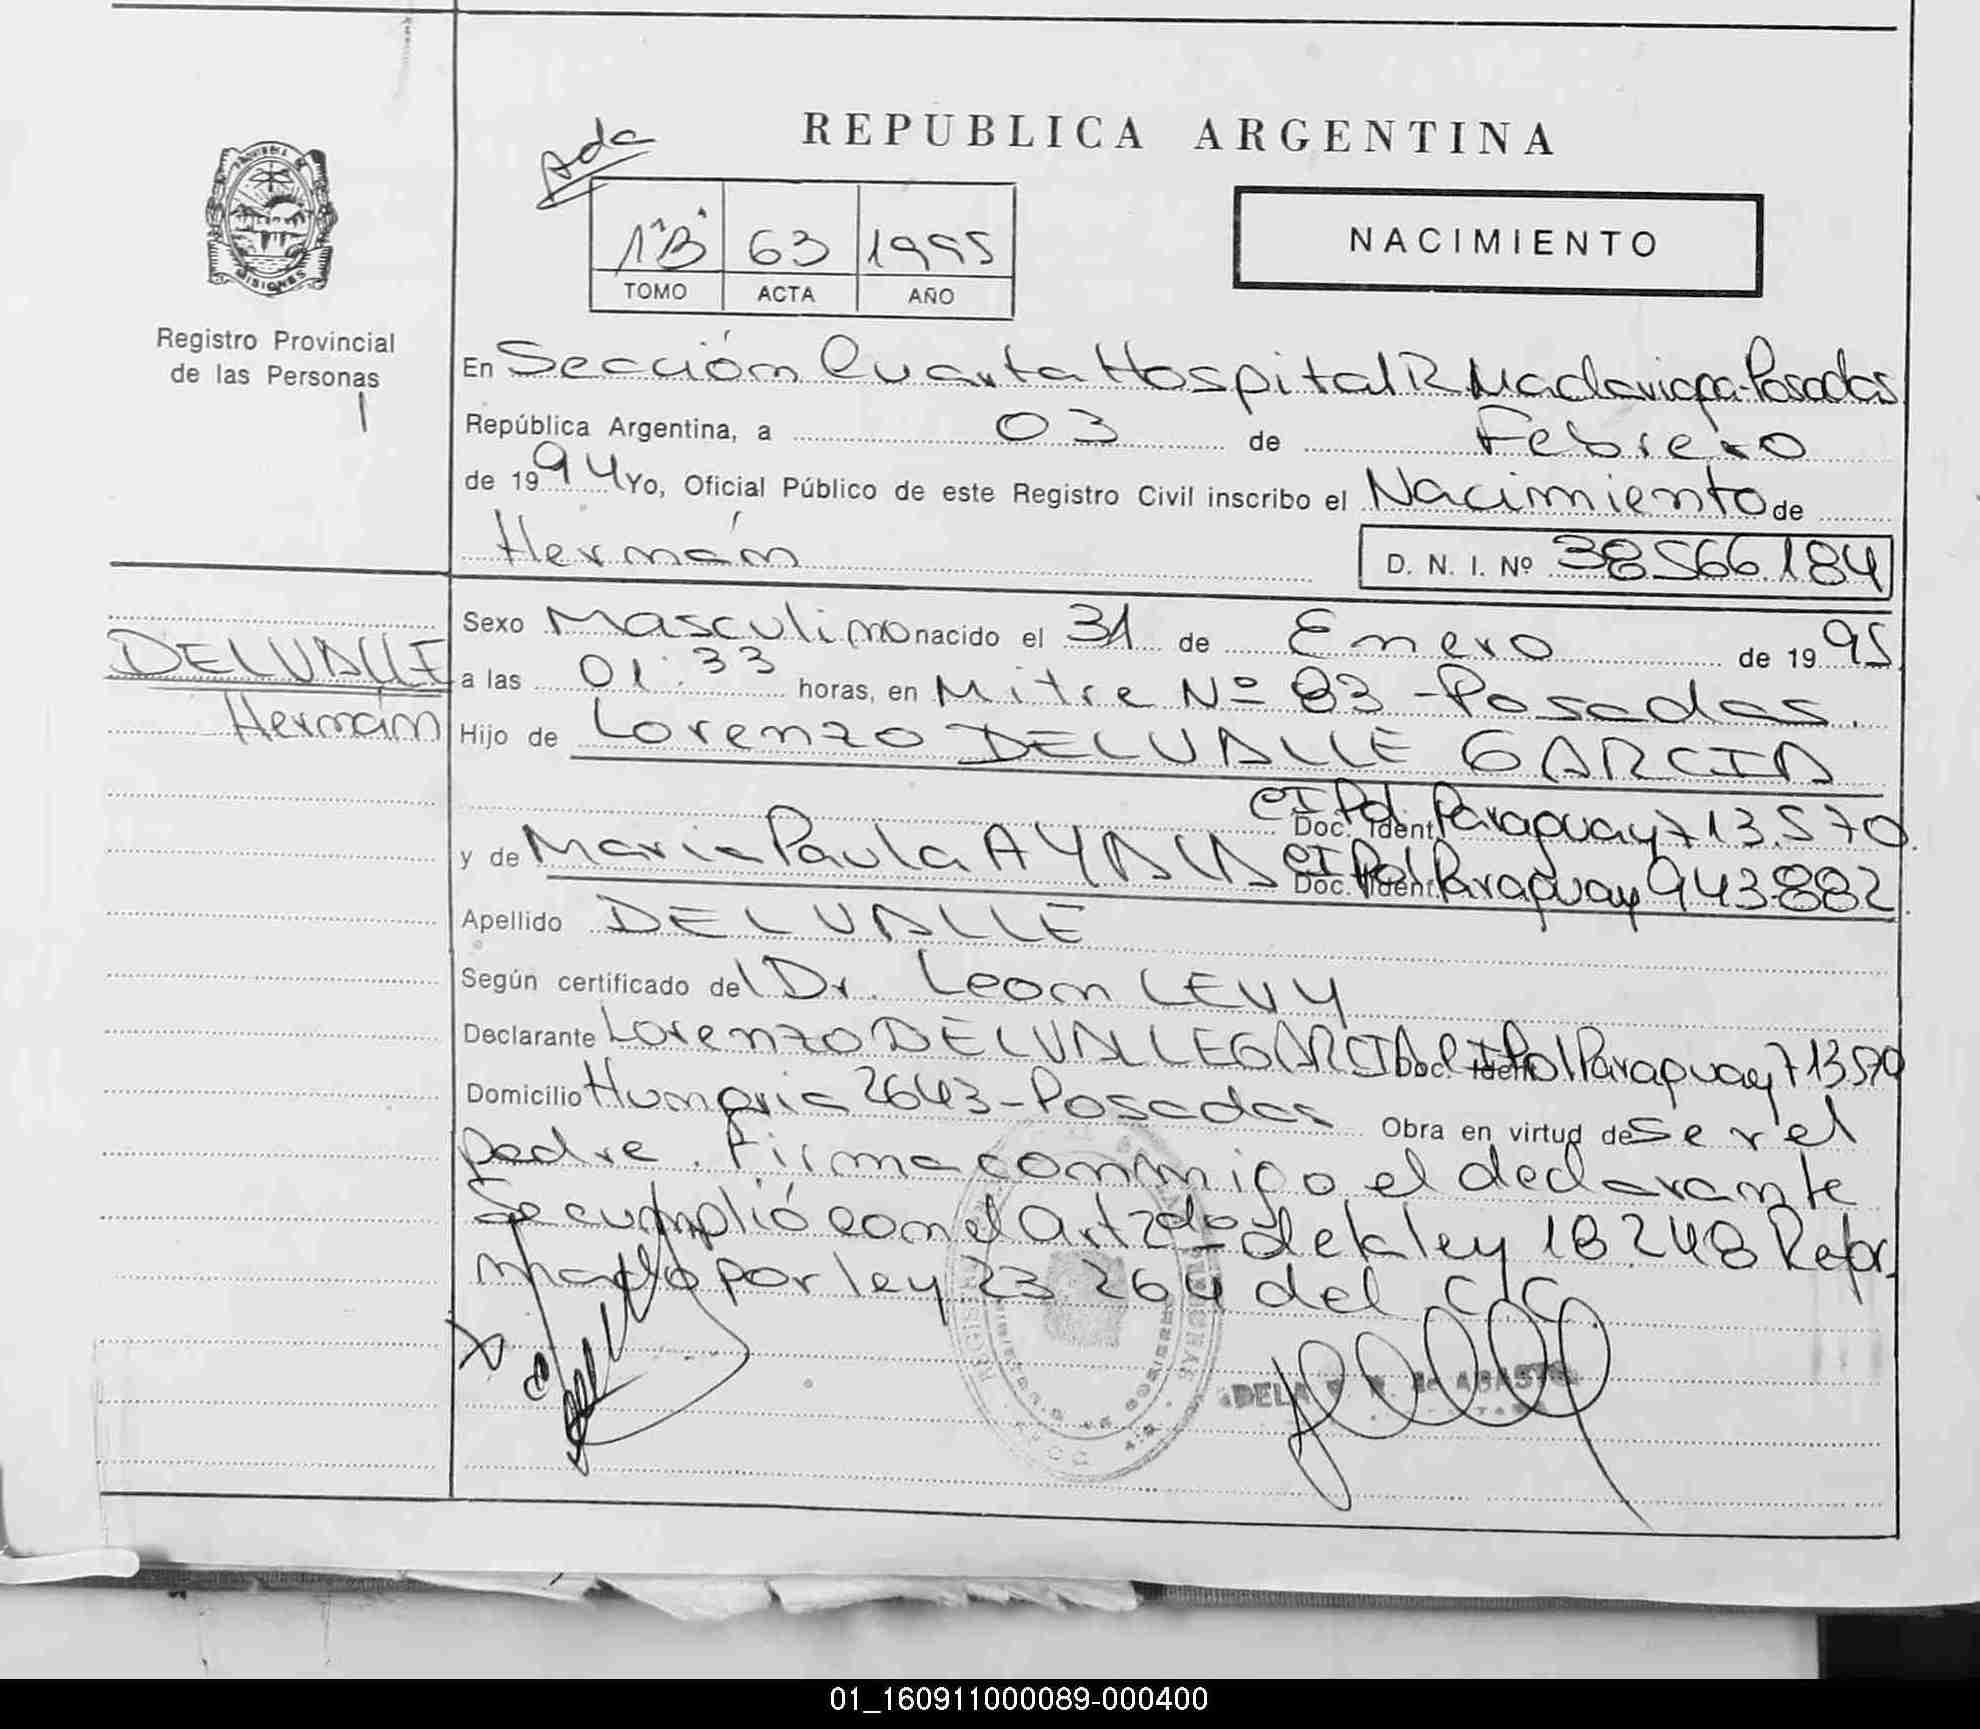 REPUBLICA ARGENTINA
Ada
1"B" 63 1995
TOMO ACTA AÑO
NACIMIENTO
PROVINCIA DE
MISIONES
Registro Provincial
de las Personas
1
En Sección Cuarta Hospital R Madariaga-Posadas
República Argentina, a 03 de Febrero
de 1994 Yo, Oficial Público de este Registro Civil inscribo el Nacimiento de
Hernán D. N. I. Nº 38566.184
DELVALLE
Hernán
Sexo Masculino nacido el 31 de Enero de 1995
a las 01:33 horas, en Mitre Nº 83 -Posadas.
Hijo de Lorenzo DELVALLE GARCIA
Doc. Ident. CI Pol. Paraguay 713.570
y de Maria Paula AYALA Doc. Ident. CI Pol Paraguay 943.882
Apellido DELVALLE
Según certificado del Dr. Leon LEVY
Declarante Lorenzo DELVALLE GARCIA Doc. Ident CI Pol Paraguay 713570
Domicilio Hungria 2643-Posadas Obra en virtud de ser el
padre. Firma conmigo el declarante
Se cumplió con el art 2do de la ley 18248 Refor
mado por ley 23 264 del C/C.
01_160911000089-000400